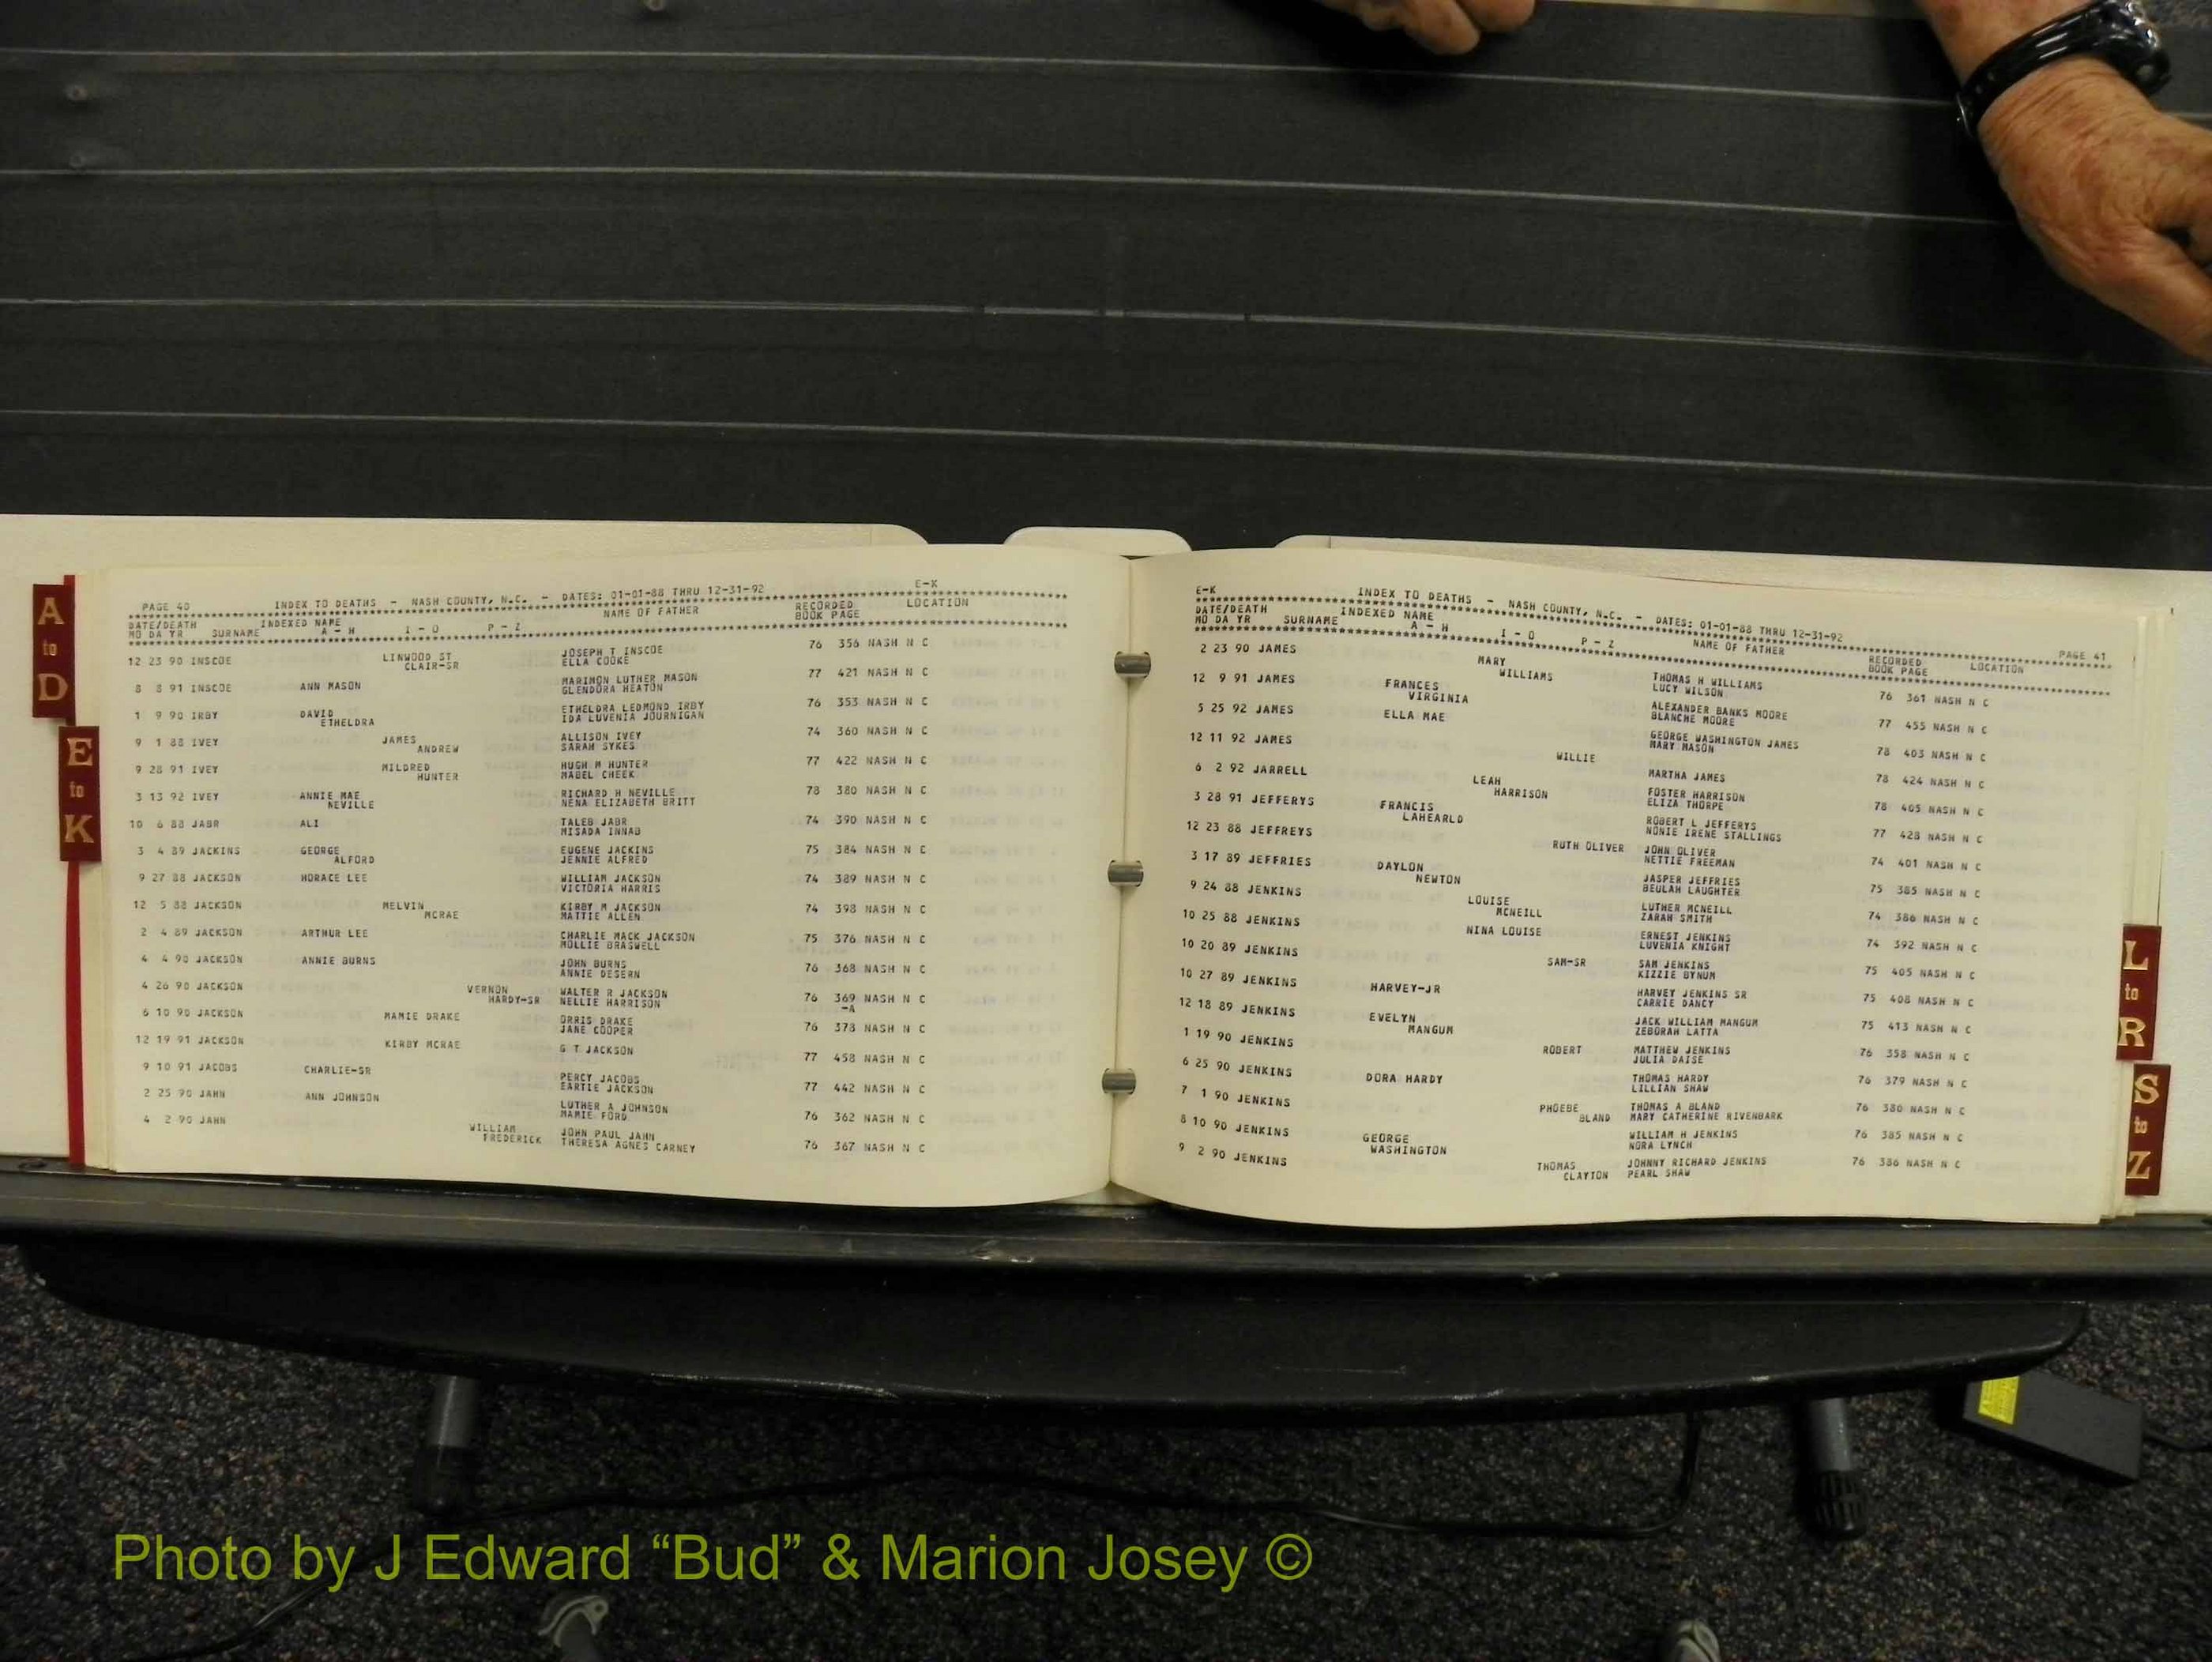 A
to
D
E
to
K
PAGE 40 INDEX TO DEATHS - NASH COUNTY, N.C. - DATES: 01-01-88 THRU 12-31-92 E-K
DATE/DEATH INDEXED NAME NAME OF FATHER RECORDED LOCATION
MO DA YR SURNAME A - H I - O P - Z BOOK PAGE
12 23 90 INSCOE LINWOOD ST JOSEPH T INSCOE 76 356 NASH N C
CLAIR-SR ELLA COOKE
8 8 91 INSCOE ANN MASON MARIMON LUTHER MASON 77 421 NASH N C
GLENDORA HEATON
1 9 90 IRBY DAVID ETHELDRA LEDMOND IRBY 76 353 NASH N C
ETHELDRA IDA LUVENIA JOURNIGAN
9 1 88 IVEY JAMES ALLISON IVEY 74 360 NASH N C
ANDREW SARAH SYKES
9 28 91 IVEY MILDRED HUGH M HUNTER 77 422 NASH N C
HUNTER MABEL CHEEK
3 13 92 IVEY ANNIE MAE RICHARD H NEVILLE 78 380 NASH N C
NEVILLE NENA ELIZABETH BRITT
10 6 88 JABR ALI TALEB JABR 74 390 NASH N C
MISADA INNAB
3 4 89 JACKINS GEORGE EUGENE JACKINS 75 384 NASH N C
ALFORD JENNIE ALFRED
9 27 88 JACKSON HORACE LEE WILLIAM JACKSON 74 389 NASH N C
VICTORIA HARRIS
12 5 88 JACKSON MELVIN KIRBY M JACKSON 74 398 NASH N C
MCRAE MATTIE ALLEN
2 4 89 JACKSON ARTHUR LEE CHARLIE MACK JACKSON 75 376 NASH N C
MOLLIE BRASWELL
4 4 90 JACKSON ANNIE BURNS JOHN BURNS 76 368 NASH N C
ANNIE DESERN
4 26 90 JACKSON VERNON WALTER R JACKSON 76 369 NASH N C
HARDY-SR NELLIE HARRISON -A
6 10 90 JACKSON MAMIE DRAKE ORRIS DRAKE 76 378 NASH N C
JANE COOPER
12 19 91 JACKSON KIRBY MCRAE G T JACKSON 77 458 NASH N C
9 10 91 JACOBS CHARLIE-SR PERCY JACOBS 77 442 NASH N C
EARTIE JACKSON
2 25 90 JAHN ANN JOHNSON LUTHER A JOHNSON 76 362 NASH N C
MAMIE FORD
4 2 90 JAHN WILLIAM JOHN PAUL JAHN 76 367 NASH N C
FREDERICK THERESA AGNES CARNEY
E-K INDEX TO DEATHS - NASH COUNTY, N.C. - DATES: 01-01-88 THRU 12-31-92 PAGE 41
DATE/DEATH INDEXED NAME NAME OF FATHER RECORDED LOCATION
MO DA YR SURNAME A - H I - O P - Z BOOK PAGE
2 23 90 JAMES MARY THOMAS H WILLIAMS 76 361 NASH N C
WILLIAMS LUCY WILSON
12 9 91 JAMES FRANCES ALEXANDER BANKS MOORE 77 455 NASH N C
VIRGINIA BLANCHE MOORE
5 25 92 JAMES ELLA MAE GEORGE WASHINGTON JAMES 78 403 NASH N C
MARY MASON
12 11 92 JAMES WILLIE MARTHA JAMES 78 424 NASH N C
6 2 92 JARRELL LEAH FOSTER HARRISON 78 405 NASH N C
HARRISON ELIZA THORPE
3 28 91 JEFFERYS FRANCIS ROBERT L JEFFERYS 77 428 NASH N C
LAHEARLD NONIE IRENE STALLINGS
12 23 88 JEFFREYS RUTH OLIVER JOHN OLIVER 74 401 NASH N C
NETTIE FREEMAN
3 17 89 JEFFRIES DAYLON JASPER JEFFRIES 75 385 NASH N C
NEWTON BEULAH LAUGHTER
9 24 88 JENKINS LOUISE LUTHER MCNEILL 74 386 NASH N C
MCNEILL ZARAH SMITH
10 25 88 JENKINS NINA LOUISE ERNEST JENKINS 74 392 NASH N C
LUVENIA KNIGHT
10 20 89 JENKINS SAM-SR SAM JENKINS 75 405 NASH N C
KIZZIE BYNUM
10 27 89 JENKINS HARVEY-JR HARVEY JENKINS SR 75 408 NASH N C
CARRIE DANCY
12 18 89 JENKINS EVELYN JACK WILLIAM MANGUM 75 413 NASH N C
MANGUM ZEBORAH LATTA
1 19 90 JENKINS ROBERT MATTHEW JENKINS 76 358 NASH N C
JULIA DAISE
6 25 90 JENKINS DORA HARDY THOMAS HARDY 76 379 NASH N C
LILLIAN SHAW
7 1 90 JENKINS PHOEBE THOMAS A BLAND 76 380 NASH N C
BLAND MARY CATHERINE RIVENBARK
8 10 90 JENKINS GEORGE WILLIAM H JENKINS 76 385 NASH N C
WASHINGTON NORA LYNCH
9 2 90 JENKINS THOMAS JOHNNY RICHARD JENKINS 76 386 NASH N C
CLAYTON PEARL SHAW
L
to
R
S
to
Z
Photo by J Edward “Bud” & Marion Josey ©